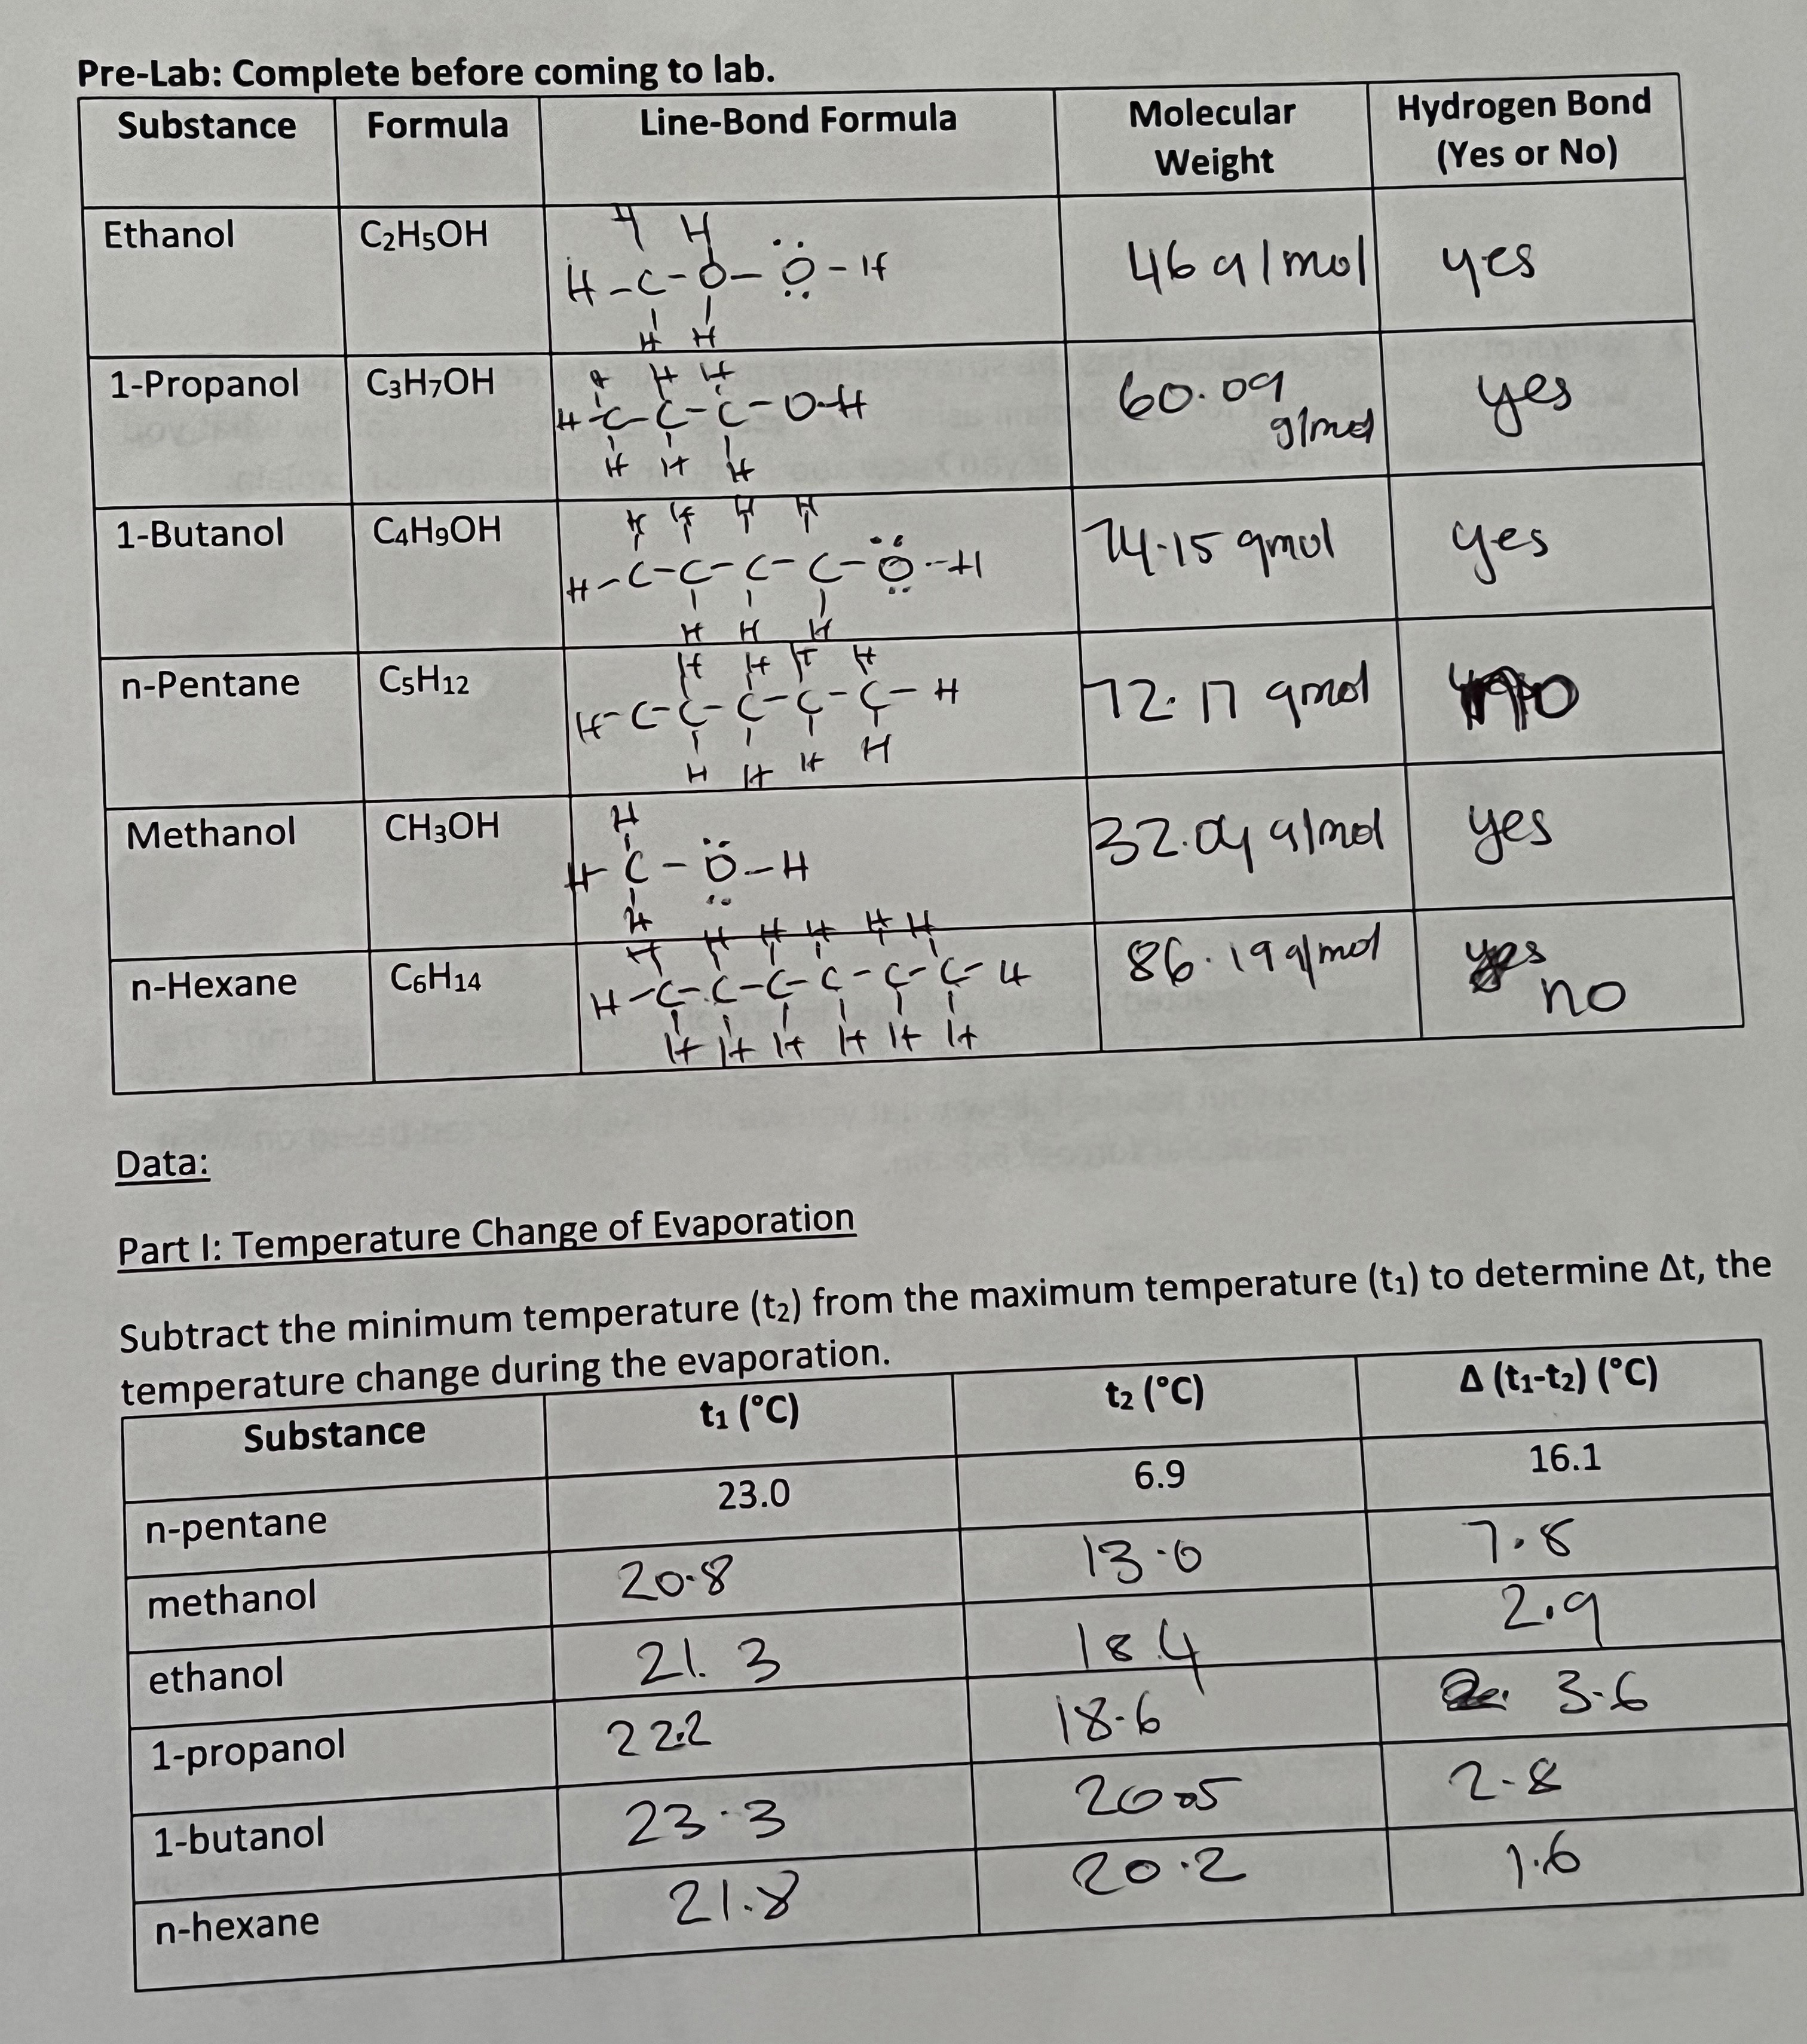 Pre-Lab: Complete before coming to lab.
Substance Formula Line-Bond Formula Molecular Weight Hydrogen Bond (Yes or No)
H H
Ethanol C₂H₅OH H-C-O-Ö-H 46 g/mol yes
H H
H H H
1-Propanol C₃H₇OH H-C-C-C-O-H 60.09 g/mol yes
H H H
H H H H
1-Butanol C₄H₉OH H-C-C-C-C-Ö-H 74.15 gmol yes
H H H
H H H H
n-Pentane C₅H₁₂ H-C-C-C-C-C-H 72.17 gmol no
H H H H
H
Methanol CH₃OH H-C-Ö-H 32.04 g/mol yes
H
H H H H H H
n-Hexane C₆H₁₄ H-C-C-C-C-C-C-H 86.19 g/mol yes no
H H H H H H
Data:
Part I: Temperature Change of Evaporation
Subtract the minimum temperature (t₂) from the maximum temperature (t₁) to determine Δt, the
temperature change during the evaporation.
Substance t₁ (°C) t₂ (°C) Δ (t₁-t₂) (°C)
n-pentane 23.0 6.9 16.1
methanol 20.8 13.0 7.8
ethanol 21.3 18.4 2.9
1-propanol 22.2 18.6 3.6
1-butanol 23.3 20.5 2.8
n-hexane 21.8 20.2 1.6